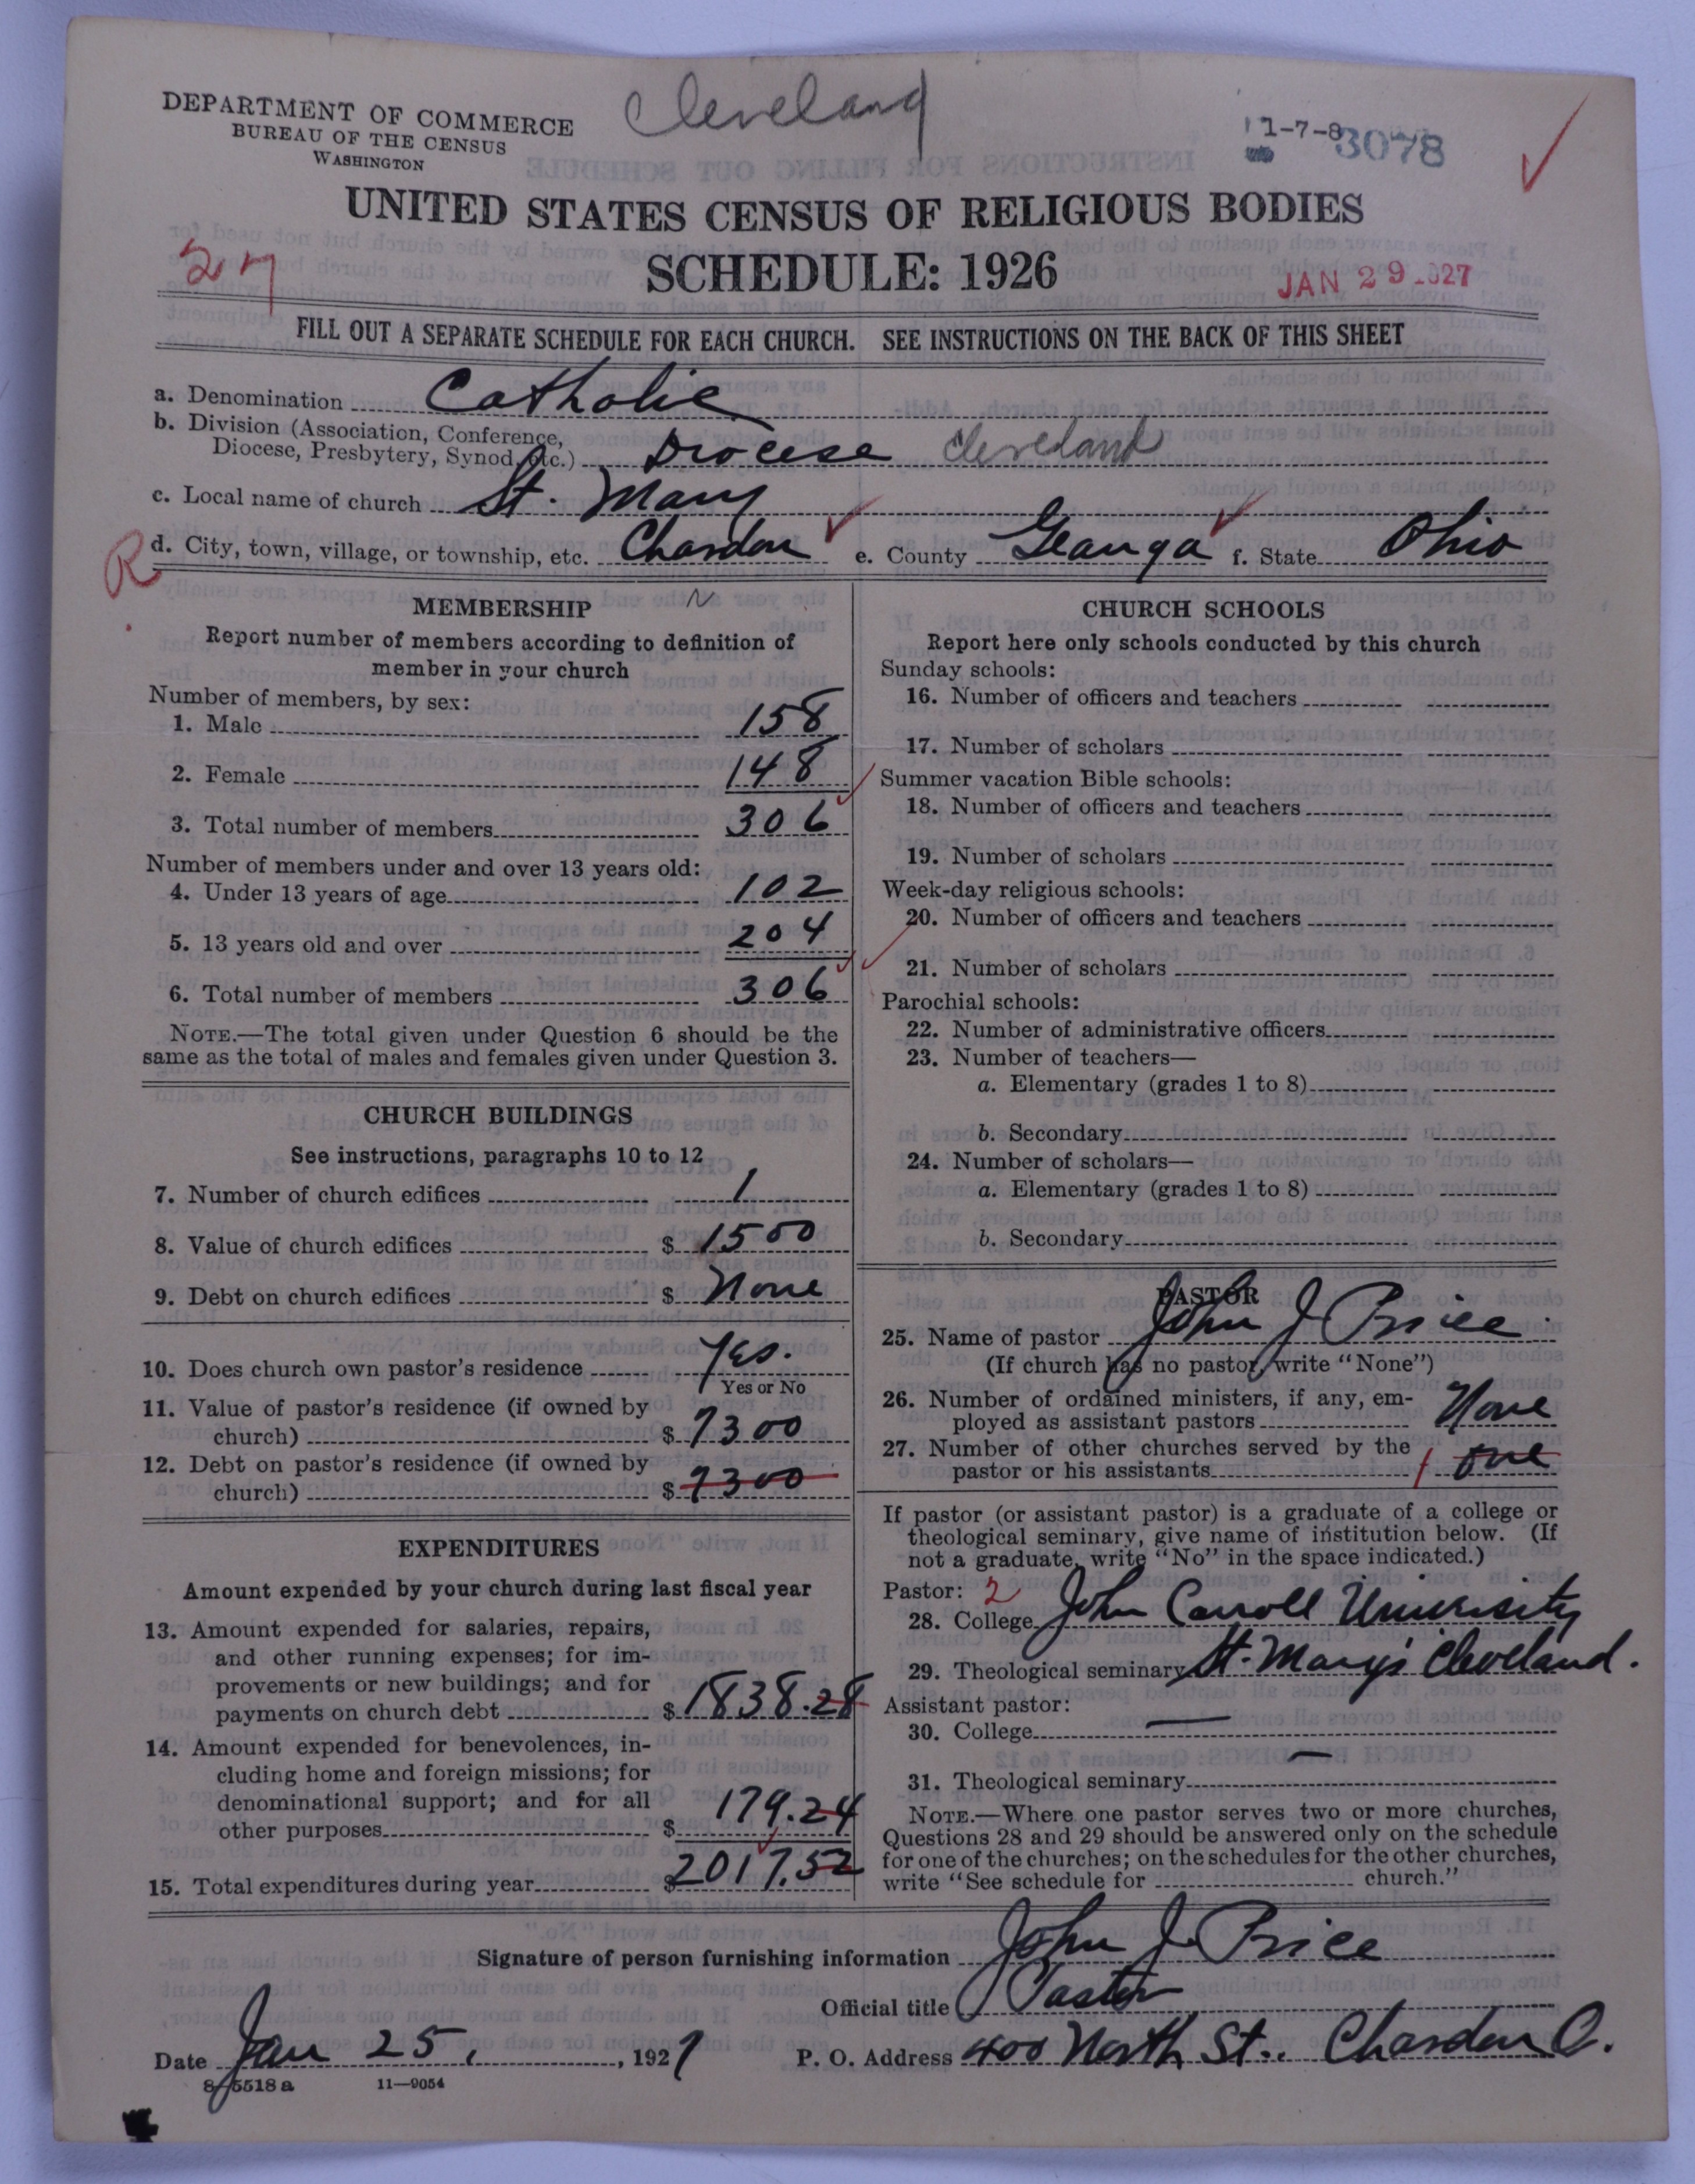 Cleveland
DEPARTMENT OF COMMERCE
BUREAU OF THE CENSUS
WASHINGTON
1-7-8
3078
UNITED STATES CENSUS OF RELIGIOUS BODIES
27
SCHEDULE: 1926
JAN 29 1927
FILL OUT A SEPARATE SCHEDULE FOR EACH CHURCH. SEE INSTRUCTIONS ON THE BACK OF THIS SHEET
a. Denomination Catholic
b. Division (Association, Conference,
Diocese, Presbytery, Synod, etc.) Diocese Cleveland
c. Local name of church St. Mary
R d. City, town, village, or township, etc. Chardon e. County Geauga f. State Ohio
MEMBERSHIP
Report number of members according to definition of
member in your church
Number of members, by sex:
1. Male 158
2. Female 148
3. Total number of members 306
Number of members under and over 13 years old:
4. Under 13 years of age 102
5. 13 years old and over 204
6. Total number of members 306
NOTE.—The total given under Question 6 should be the
same as the total of males and females given under Question 3.
CHURCH BUILDINGS
See instructions, paragraphs 10 to 12
7. Number of church edifices 1
8. Value of church edifices $ 1500
9. Debt on church edifices $ None
10. Does church own pastor's residence Yes.
Yes or No
11. Value of pastor's residence (if owned by
church) $ 7300
12. Debt on pastor's residence (if owned by
church) $ 7300
EXPENDITURES
Amount expended by your church during last fiscal year
13. Amount expended for salaries, repairs,
and other running expenses; for im-
provements or new buildings; and for
payments on church debt $ 1838.28
14. Amount expended for benevolences, in-
cluding home and foreign missions; for
denominational support; and for all
other purposes $ 179.24
15. Total expenditures during year $ 2017.52
CHURCH SCHOOLS
Report here only schools conducted by this church
Sunday schools:
16. Number of officers and teachers
17. Number of scholars
Summer vacation Bible schools:
18. Number of officers and teachers
19. Number of scholars
Week-day religious schools:
20. Number of officers and teachers
21. Number of scholars
Parochial schools:
22. Number of administrative officers
23. Number of teachers—
a. Elementary (grades 1 to 8)
b. Secondary
24. Number of scholars—
a. Elementary (grades 1 to 8)
b. Secondary
PASTOR
25. Name of pastor John J Price
(If church has no pastor, write "None")
26. Number of ordained ministers, if any, em-
ployed as assistant pastors None
27. Number of other churches served by the
pastor or his assistants 1 one
If pastor (or assistant pastor) is a graduate of a college or
theological seminary, give name of institution below. (If
not a graduate, write "No" in the space indicated.)
Pastor: 2
28. College John Carroll University
29. Theological seminary St. Mary's Cleveland.
Assistant pastor:
30. College —
31. Theological seminary —
NOTE.—Where one pastor serves two or more churches,
Questions 28 and 29 should be answered only on the schedule
for one of the churches; on the schedules for the other churches,
write "See schedule for church."
Signature of person furnishing information John J. Price
Official title Pastor
Date Jan 25, , 1927 P. O. Address 400 North St.. Chardon O.
8-5518 a 11—9054